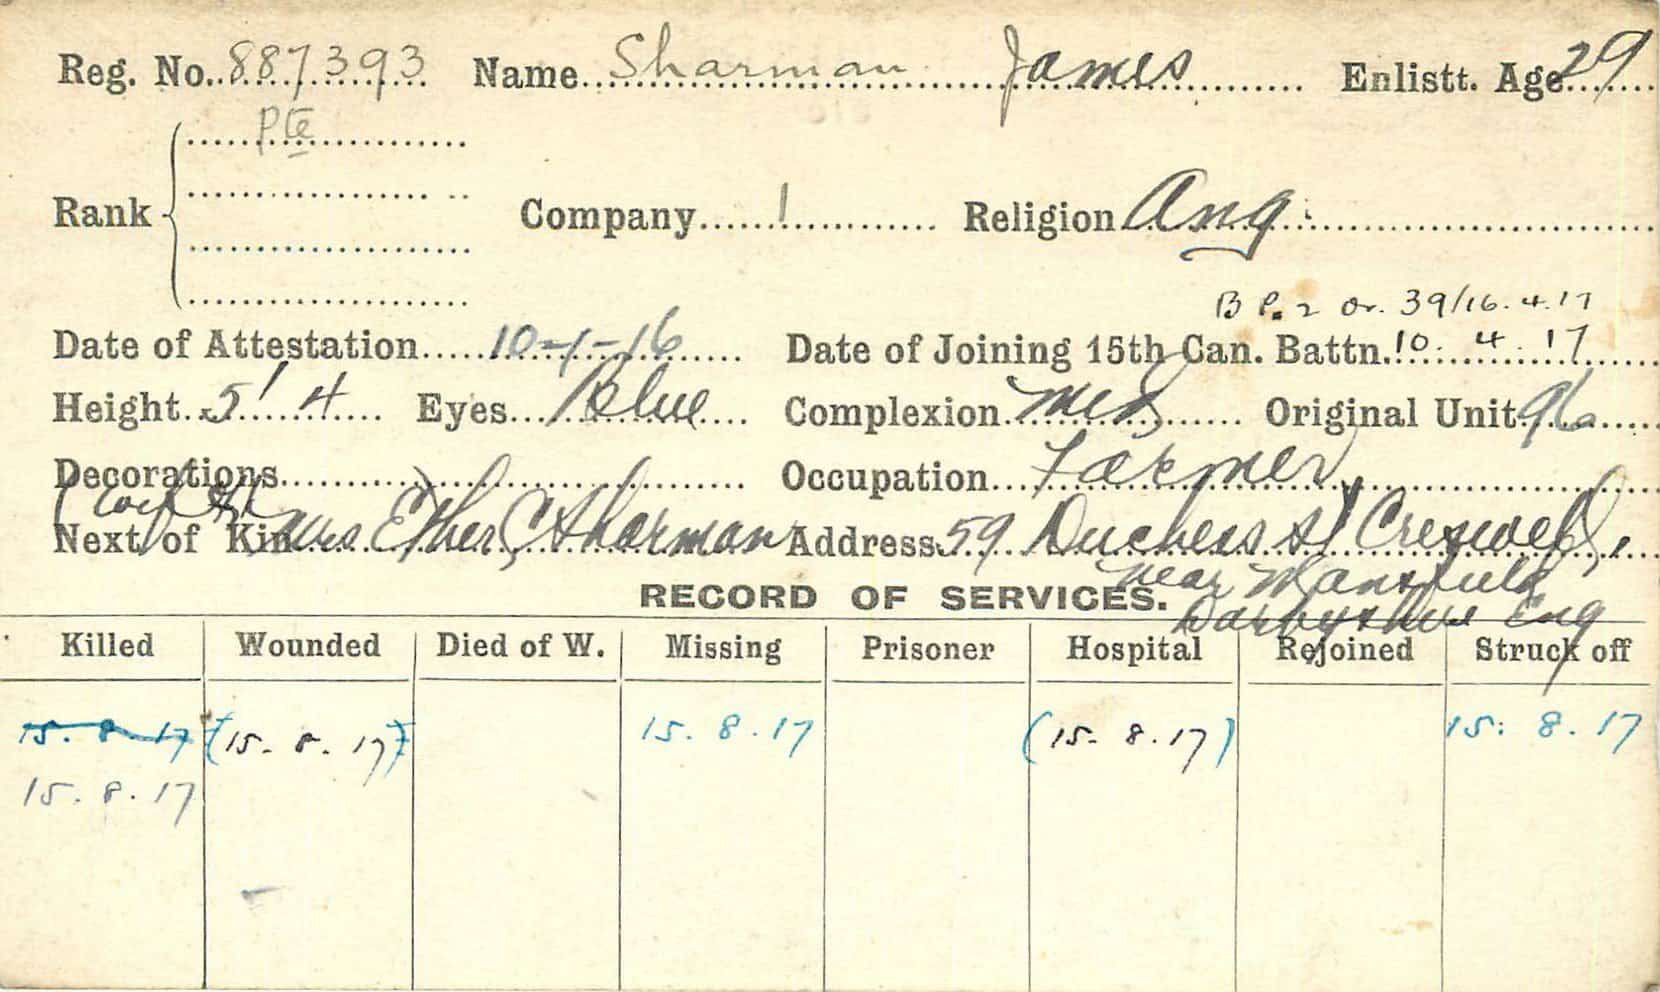 Reg. No. 887393 Name Sharman James Enlistt. Age 29
Pte
Rank Company 1 Religion Ang.
B P. 2 Or. 39/16.4.17
Date of Attestation 10-1-16 Date of Joining 15th Can. Battn. 10. 4. 17
Height 5' 4 Eyes Blue Complexion Med Original Unit 96
Decorations Occupation Farmer
(Wife)
Next of Kin Mrs Ether C Sharman Address 59 Duchess St Creswell,
near Mansfield
RECORD OF SERVICES.
Darbyshire Eng
Killed Wounded Died of W. Missing Prisoner Hospital Rejoined Struck off
15. 8. 17 (15. 8. 17) 15. 8. 17 (15. 8. 17) 15. 8. 17
15. 8. 17